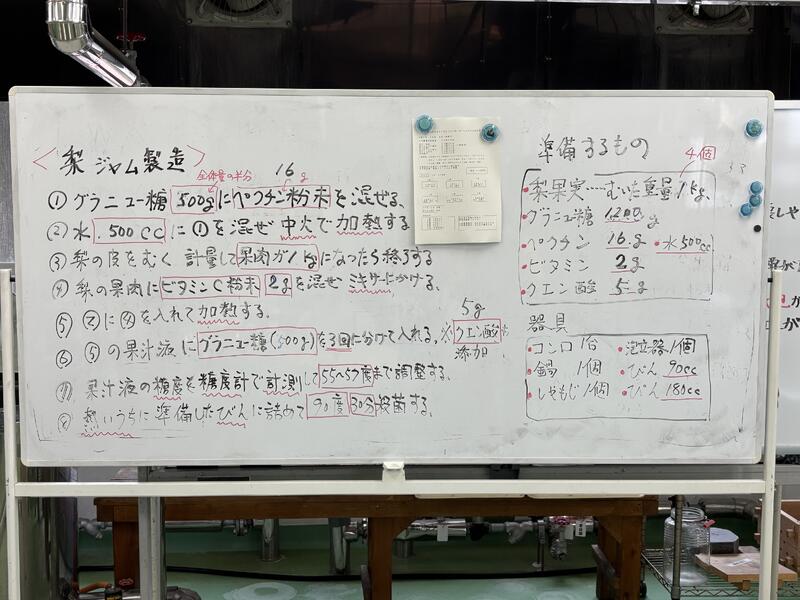 〈梨ジャム製造〉
全体量の半分
16g
① グラニュー糖 500gにペクチン粉末を混ぜる、
② 水.500ccに①を混ぜ 中火で加熱する
③ 梨の皮をむく 計量して果肉が1kgになったら終了する
④ 梨の果肉にビタミンC粉末 2gを混ぜ ミキサーにかける。
⑤ ②に④を入れて加熱する。
⑥ ⑤の果汁液にグラニュー糖(500g)を3回に分けて入れる。
5g
※クエン酸
添加
果汁液の糖度を糖度計で計測して55〜57度まで調整する。
⑧ 熱いうちに準備したびんに詰めて 90度 30分殺菌する。
準備するもの
4個
・梨果実…むいた重量1kg、
・グラニュー糖 g
・ペクチン 16.g ・水500cc
・ビタミン 2g
・クエン酸 5g
器具
・コンロ 1台 ・泡立器1個
・鍋 1個 ・びん 90cc
・しゃもじ1個 ・びん 180cc